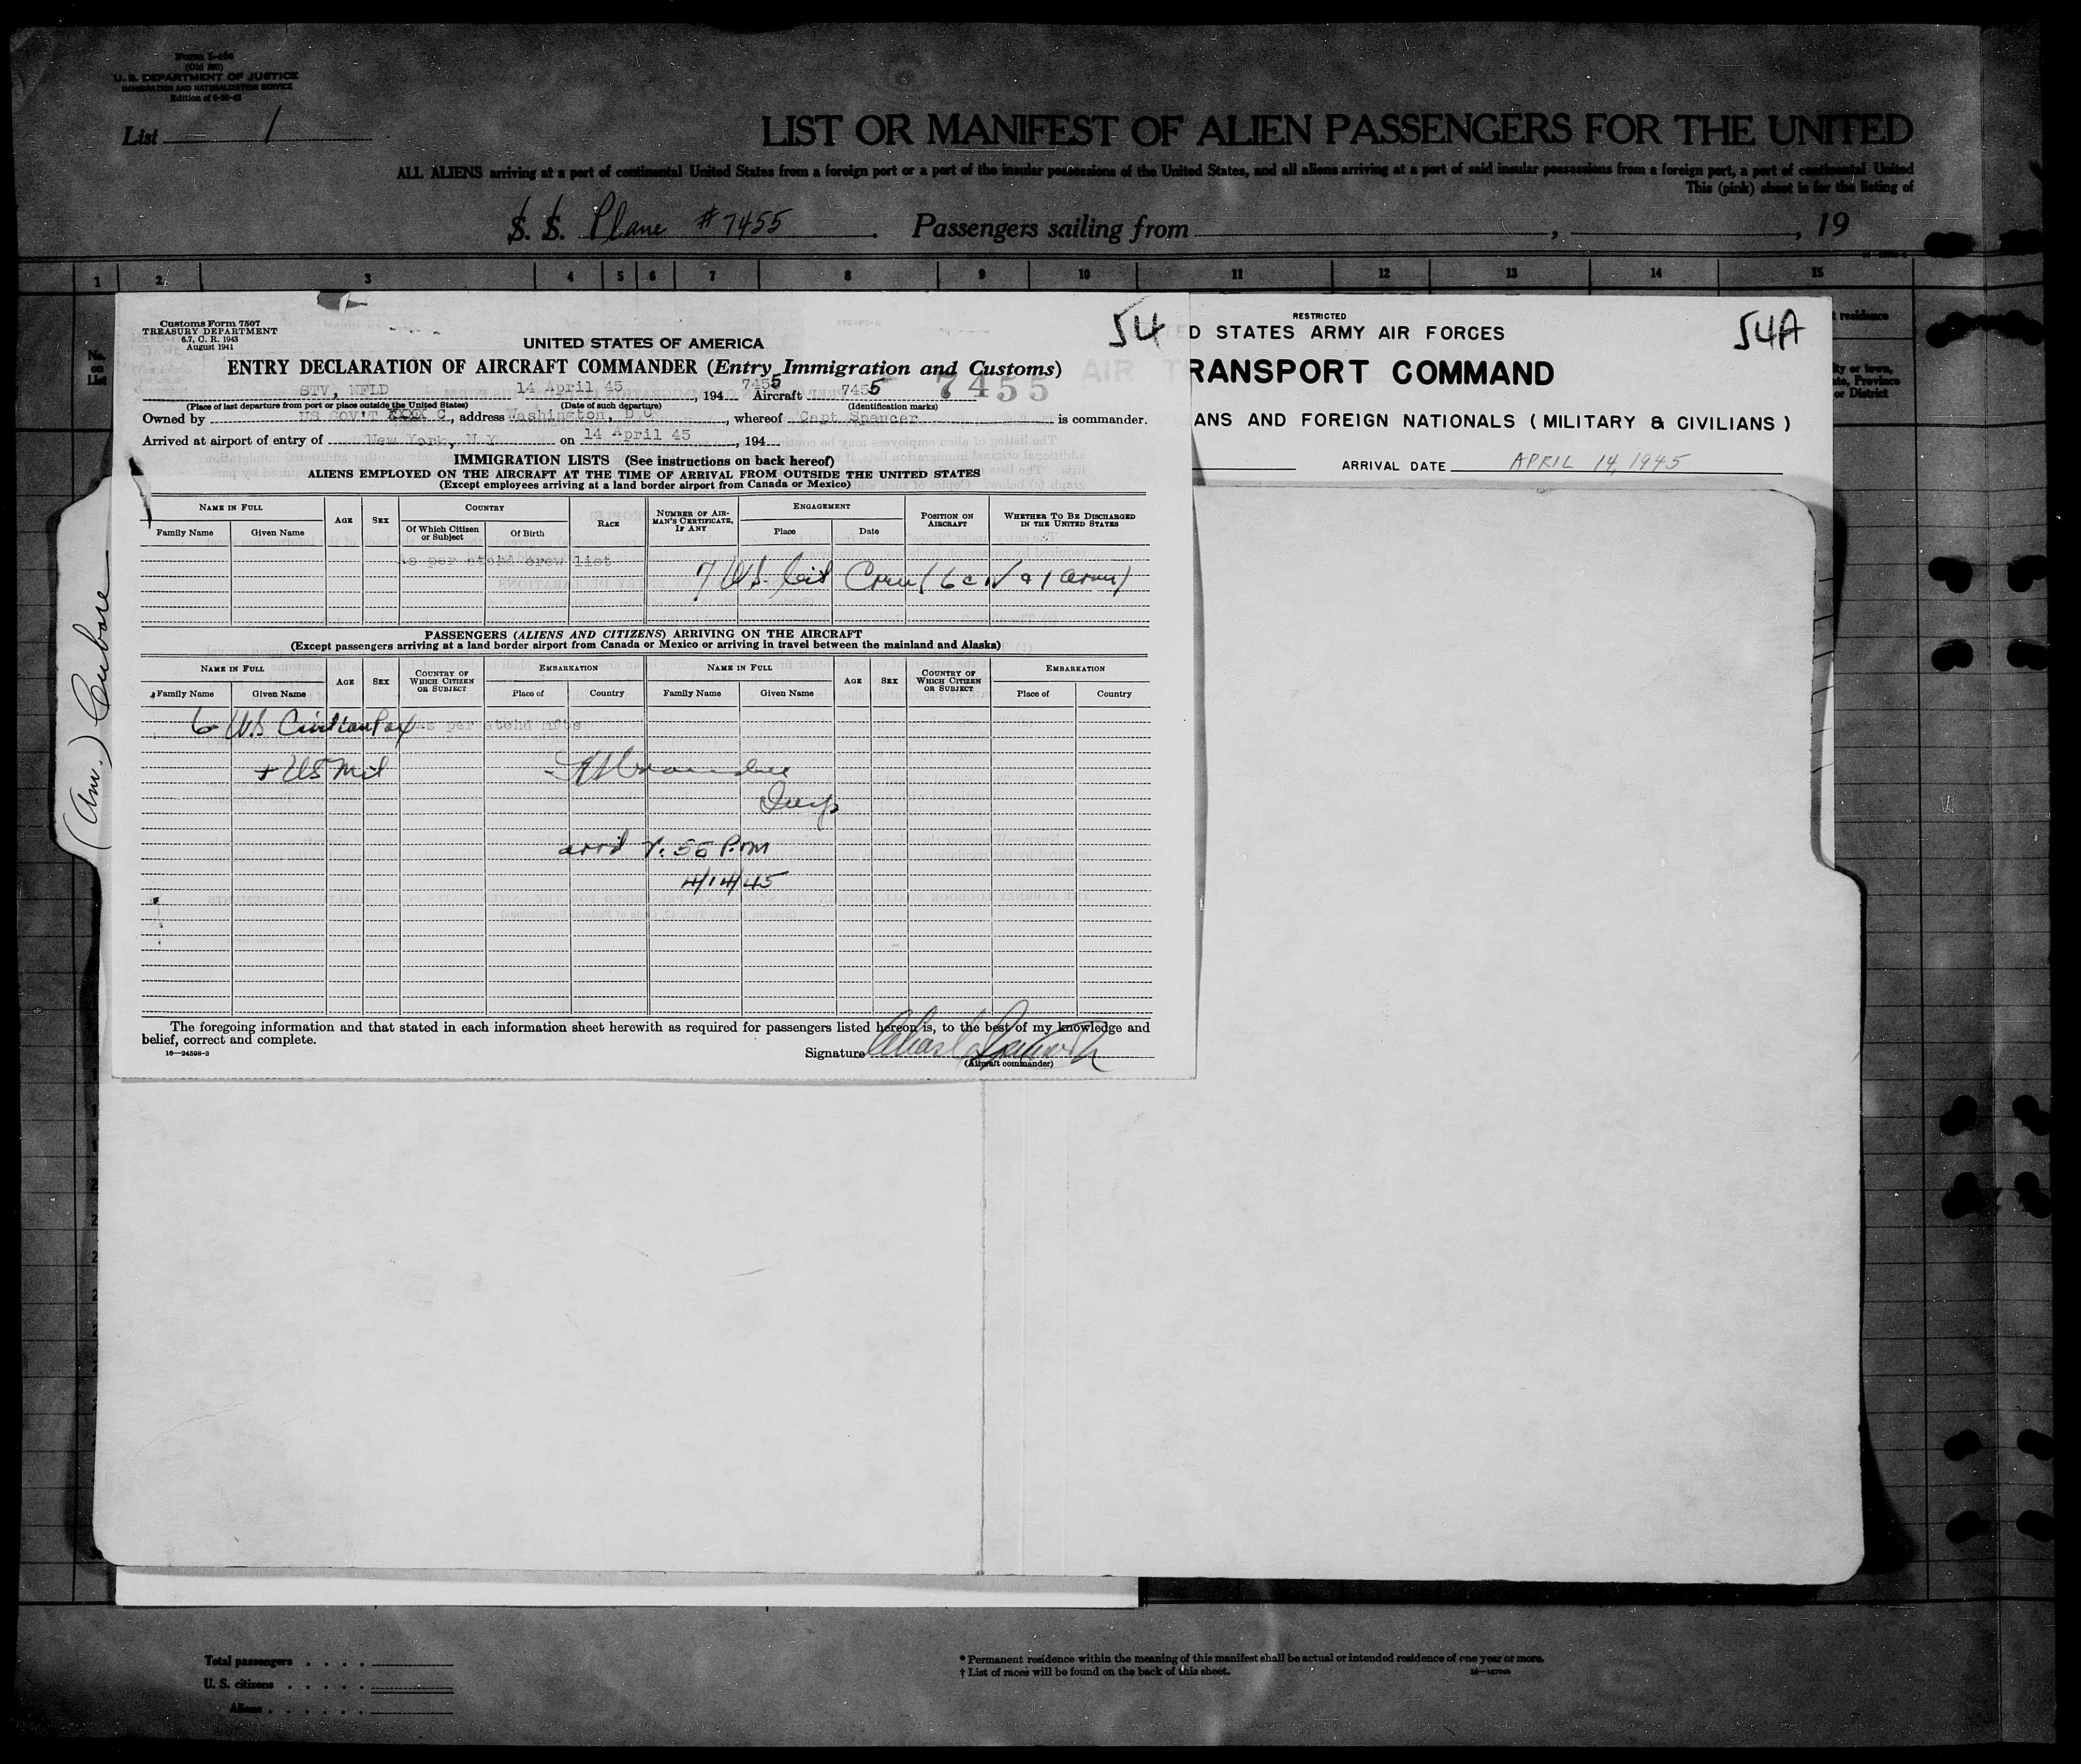 Form I-466
(Old 500)
U. S. DEPARTMENT OF JUSTICE
IMMIGRATION AND NATURALIZATION SERVICE
List 1
LIST OR MANIFEST OF ALIEN PASSENGERS FOR THE UNITED
ALL ALIENS arriving at a port of continental United States from a foreign port or a port of the insular possessions of the United States, and all aliens arriving at a port of said insular possessions from a foreign port, a port of continental United
This (pink) sheet is for the listing of
S. S. Plane #7455 Passengers sailing from , , 19
1 2 3 4 5 6 7 8 9 10 11 12 13 14 15
No. on List
residence
or town,
Province
or District
54
Customs Form 7507
TREASURY DEPARTMENT
6.7, C. R. 1943
August 1941
UNITED STATES OF AMERICA
ENTRY DECLARATION OF AIRCRAFT COMMANDER (Entry, Immigration and Customs)
STV, NFLD 14 April 45, 194 Aircraft 7455 7455 7455
(Place of last departure from port or place outside the United States) (Date of such departure) (Identification marks)
Owned by US Gov't XXXX C, address Washington, D C, whereof Capt Spencer is commander.
Arrived at airport of entry of New York, N.Y. on 14 April 45, 194
IMMIGRATION LISTS (See instructions on back hereof)
ALIENS EMPLOYED ON THE AIRCRAFT AT THE TIME OF ARRIVAL FROM OUTSIDE THE UNITED STATES
(Except employees arriving at a land border airport from Canada or Mexico)
NAME IN FULL AGE SEX COUNTRY RACE NUMBER OF AIRMAN'S CERTIFICATE, IF ANY ENGAGEMENT POSITION ON AIRCRAFT WHETHER TO BE DISCHARGED IN THE UNITED STATES
Family Name Given Name Of Which Citizen or Subject Of Birth Place Date
as per atchd crew list
7 U.S. Cit Crew (6 civ & 1 army)
PASSENGERS (ALIENS AND CITIZENS) ARRIVING ON THE AIRCRAFT
(Except passengers arriving at a land border airport from Canada or Mexico or arriving in travel between the mainland and Alaska)
NAME IN FULL AGE SEX COUNTRY OF WHICH CITIZEN OR SUBJECT EMBARKATION NAME IN FULL AGE SEX COUNTRY OF WHICH CITIZEN OR SUBJECT EMBARKATION
Family Name Given Name Place of Country Family Name Given Name Place of Country
6 US Civilian Pax as per atchd mfts
+ US Mil
Insp
arrd 7:55 P.m
4/14/45
The foregoing information and that stated in each information sheet herewith as required for passengers listed hereon is, to the best of my knowledge and
belief, correct and complete.
16—24598-3
Signature
(Aircraft commander)
54A
RESTRICTED
D STATES ARMY AIR FORCES
AIR TRANSPORT COMMAND
ANS AND FOREIGN NATIONALS (MILITARY & CIVILIANS)
ARRIVAL DATE APRIL 14, 1945
(Am.) Airbase
Total passengers
U. S. citizens
Aliens
* Permanent residence within the meaning of this manifest shall be actual or intended residence of one year or more.
† List of races will be found on the back of this sheet.